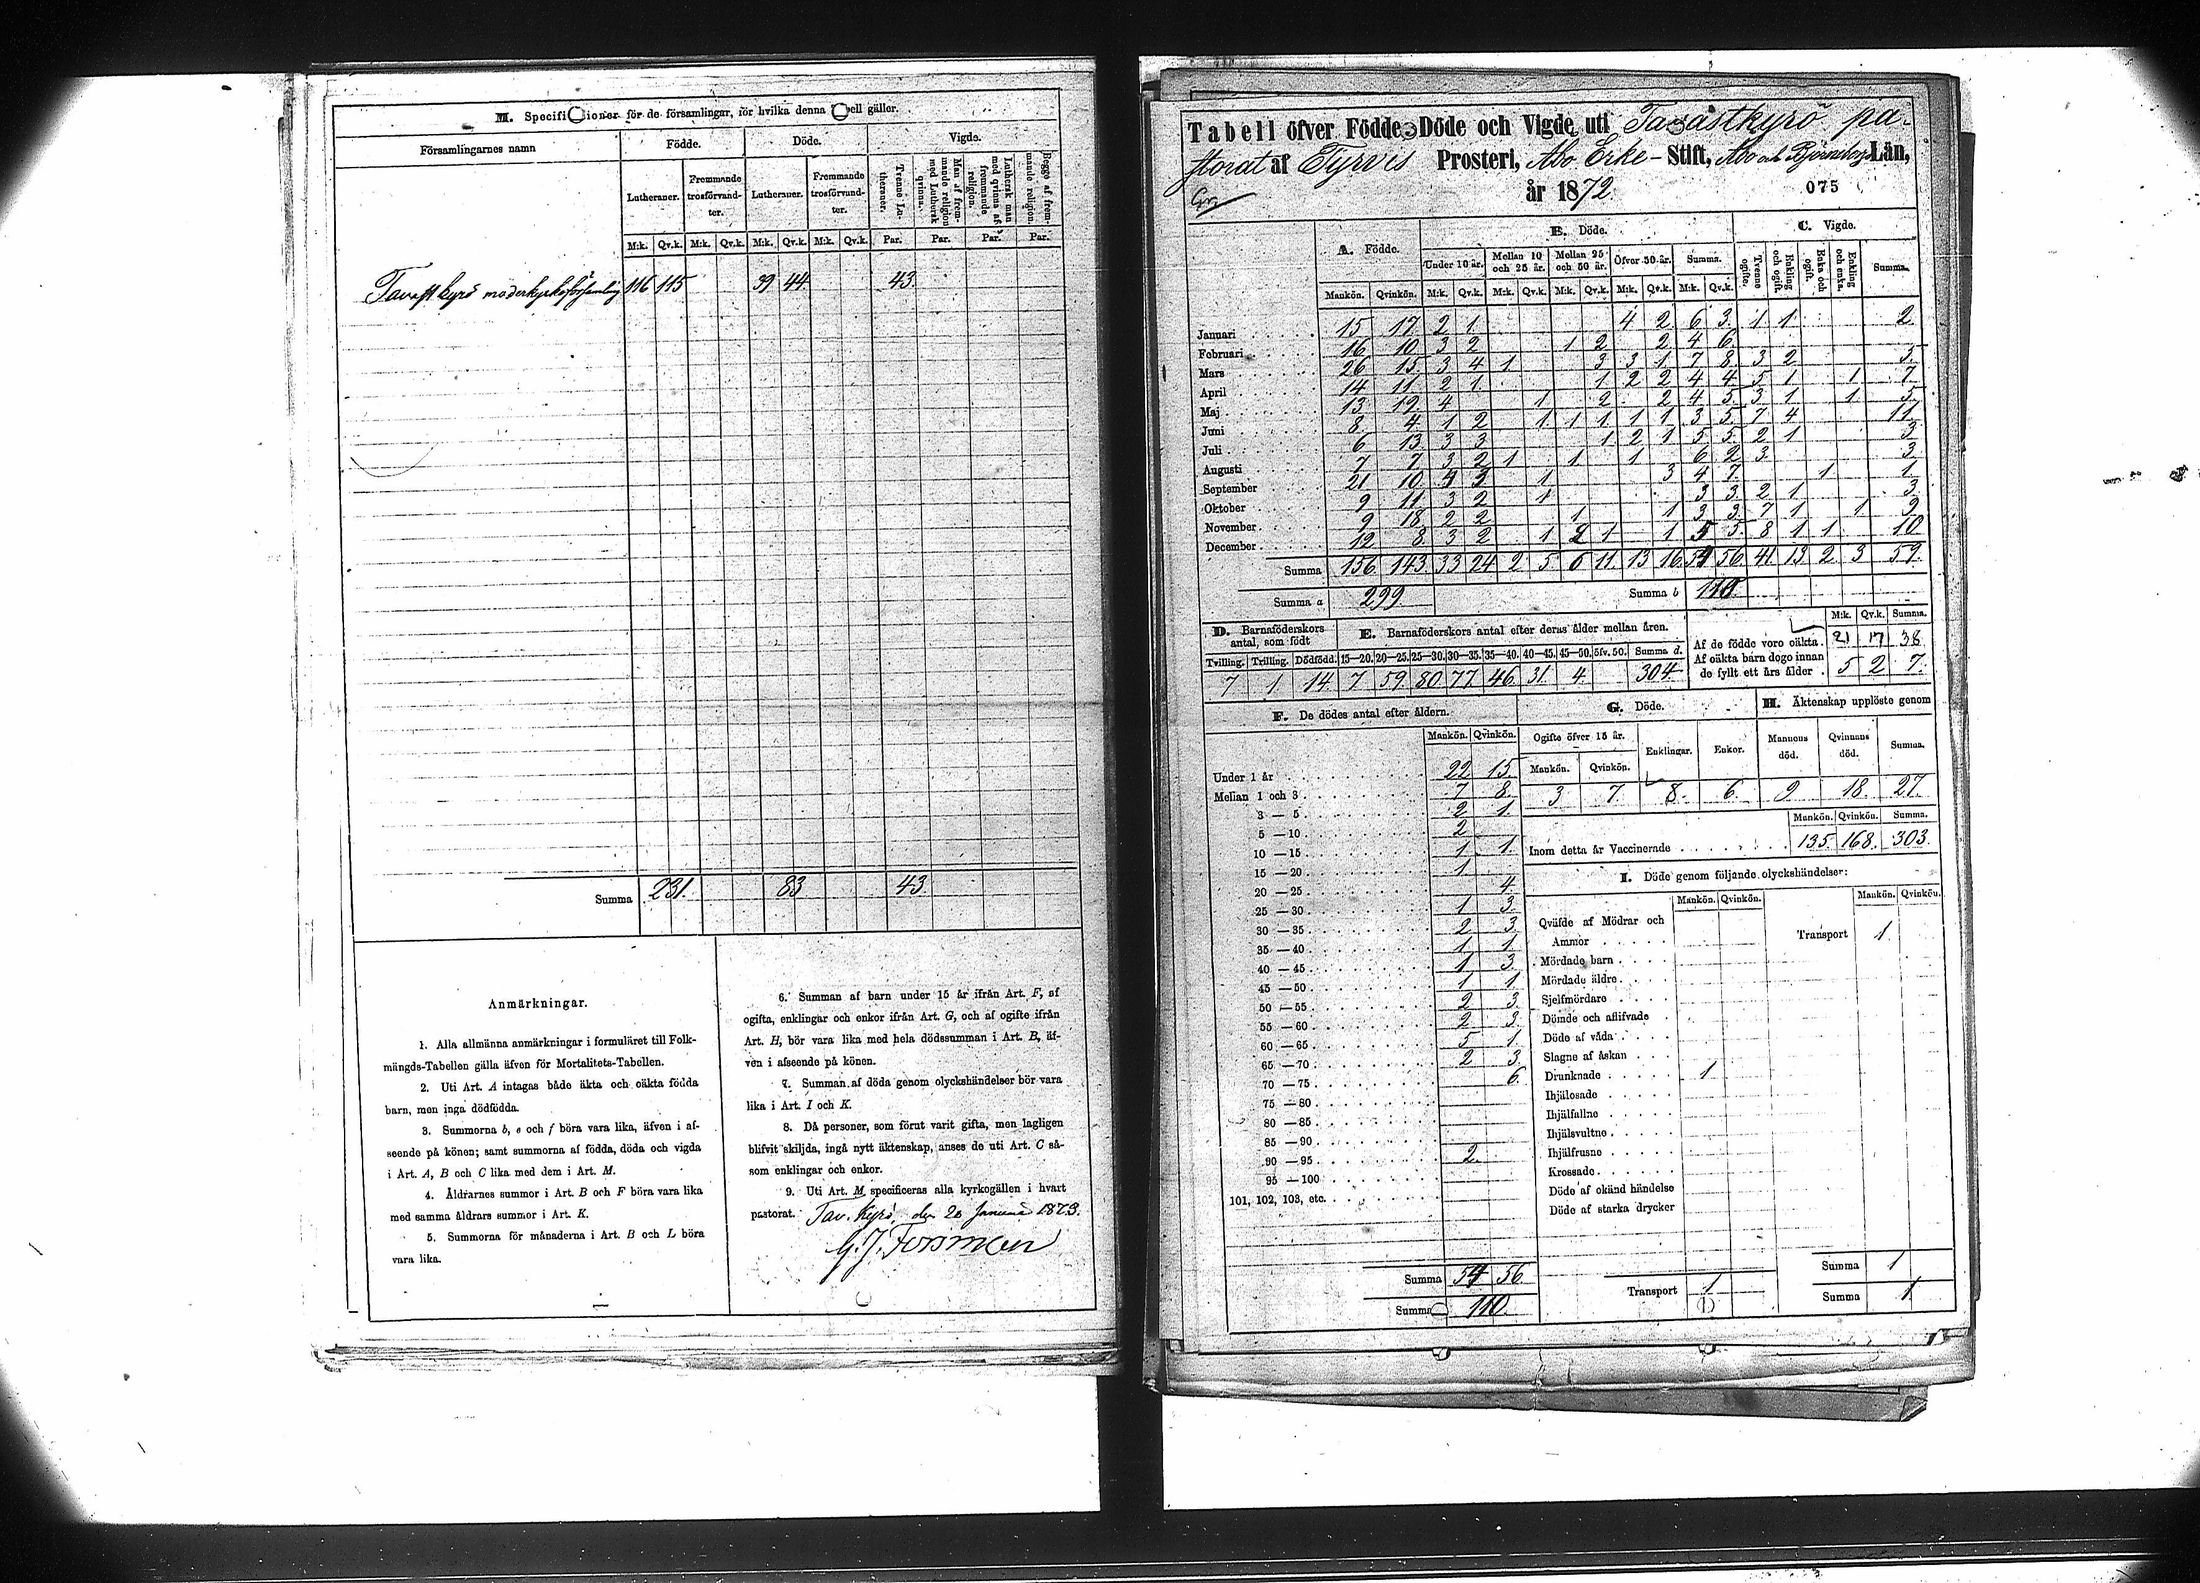 M. Specifi ioner för de församlingar, för hvilka denna bell gäller.
Församlingarnes namn
Födde. Döde. Vigde.
Lutheraner. Fremmande trosförvandter. Lutheraner. Fremmande trosförvandter. Trenne Lutheraner. Man af fremmande religion med Luthersk qvinna. Luthersk man med qvinna af fremmande religion. Begge af fremmande religion.
M:k. Qv.k. M:k. Qv.k. M:k. Qv.k. M:k. Qv.k. Par. Par. Par. Par.
Tavastkyrö moderkyrkoförsamling 116 115 39 44 43
Summa 231. 83 43
Anmärkningar.
1. Alla allmänna anmärkningar i formuläret till Folk-
mängds-Tabellen gälla äfven för Mortalitets-Tabellen.
2. Uti Art. A intagas både äkta och oäkta födda
barn, men inga dödfödda.
3. Summorna b, e och f böra vara lika, äfven i af-
seende på könen; samt summorna af födda, döda och vigda
i Art. A, B och C lika med dem i Art. M.
4. Åldrarnes summor i Art. B och F böra vara lika
med samma åldrars summor i Art. K.
5. Summorna för månaderna i Art. B och L böra
vara lika.
6. Summan af barn under 15 år ifrån Art. F, af
ogifta, enklingar och enkor ifrån Art. G, och af ogifte ifrån
Art. H, bör vara lika med hela dödssumman i Art. B, äf-
ven i afseende på könen.
7. Summan af döda genom olyckshändelser bör vara
lika i Art. I och K.
8. Då personer, som förut varit gifta, men lagligen
blifvit skiljda, ingå nytt äktenskap, anses de uti Art. C så-
som enklingar och enkor.
9. Uti Art. M specificeras alla kyrkogällen i hvart
pastorat. Tav. Kyrö, den 20 Januari 1873.
G. J. Forsman
Tabell öfver Födde, Döde och Vigde uti Tavastkyrö pa-
storat af Tyrvis Prosteri, Åbo Erke-Stift, Åbo och Björneborgs Län,
år 1872. 075
A. Födde. B. Döde. C. Vigde.
Under 10 år. Mellan 10 och 25 år. Mellan 25 och 50 år. Öfver 50 år. Summa. Trenne ogifte. Enkling och ogift. Enka och ogift. Enkling och enka. Summa.
Mankön. Qvinkön. M:k. Qv.k. M:k. Qv.k. M:k. Qv.k. M:k. Qv.k. M:k. Qv.k.
Januari 15 17 2 1 4 2 6 3 1 1 2
Februari 16 10 3 2 1 2 2 4 6
Mars 26 15 3 4 1 3 3 1 7 8 3 2 5
April 14 11 2 1 1 2 2 4 4 5 1 1 7
Maj 13 19 4 1 2 2 4 5 3 1 1 5
Juni 8 4 1 2 1 1 1 1 1 3 5 7 4 11
Juli 6 13 3 3 1 2 1 5 5 2 1 3
Augusti 7 7 3 2 1 1 1 6 2 3 3
September 21 10 4 3 1 3 4 7 1 1
Oktober 9 11 3 2 1 3 3 2 1 3
November 9 18 2 2 1 1 3 3 7 1 1 9
December 12 8 3 2 1 2 1 1 5 5 8 1 1 10
Summa 156 143 33 24 2 5 6 11 13 16 54 56 41 13 2 3 59
Summa a 299 Summa b 110
D. Barnaföderskors antal, som födt
Tvilling. Trilling. Dödfödd.
7 1 14
E. Barnaföderskors antal efter deras ålder mellan åren.
15—20. 20—25. 25—30. 30—35. 35—40. 40—45. 45—50. öfv. 50. Summa d.
7 59 80 77 46 31 4 304
M:k. Qv.k. Summa.
Af de födde voro oäkta 21 17 38
Af oäkta barn dogo innan
de fyllt ett års ålder 5 2 7
F. De dödes antal efter åldern.
Mankön. Qvinkön.
Under 1 år 22 15
Mellan 1 och 3 7 8
3 — 5 2 1
5 — 10 2
10 — 15 1 1
15 — 20 1
20 — 25 4
25 — 30 1 3
30 — 35 2 3
35 — 40 1 1
40 — 45 1 3
45 — 50 1 1
50 — 55 2 3
55 — 60 2 3
60 — 65 5 1
65 — 70 2 3
70 — 75 6
75 — 80
80 — 85
85 — 90
90 — 95 2
95 — 100
101, 102, 103, etc.
Summa 54 56
Summa 110
G. Döde.
Ogifte öfver 15 år. Enklingar. Enkor.
Mankön. Qvinkön.
3 7 8 6
H. Äktenskap upplöste genom
Mannens död. Qvinnans död. Summa.
9 18 27
Mankön. Qvinkön. Summa.
Inom detta år Vaccinerade 135 168 303
I. Döde genom följande olyckshändelser:
Mankön. Qvinkön. Mankön. Qvinkön.
Qväfde af Mödrar och
Ammor Transport 1
Mördade barn
Mördade äldre
Sjelfmördare
Dömde och aflifvade
Döde af våda
Slagne af åskan
Drunknade 1
Ihjälosade
Ihjälfallne
Ihjälsvultne
Ihjälfrusne
Krossade
Döde af okänd händelse
Döde af starka drycker
Transport 1
(1)
Summa 1
Summa 1